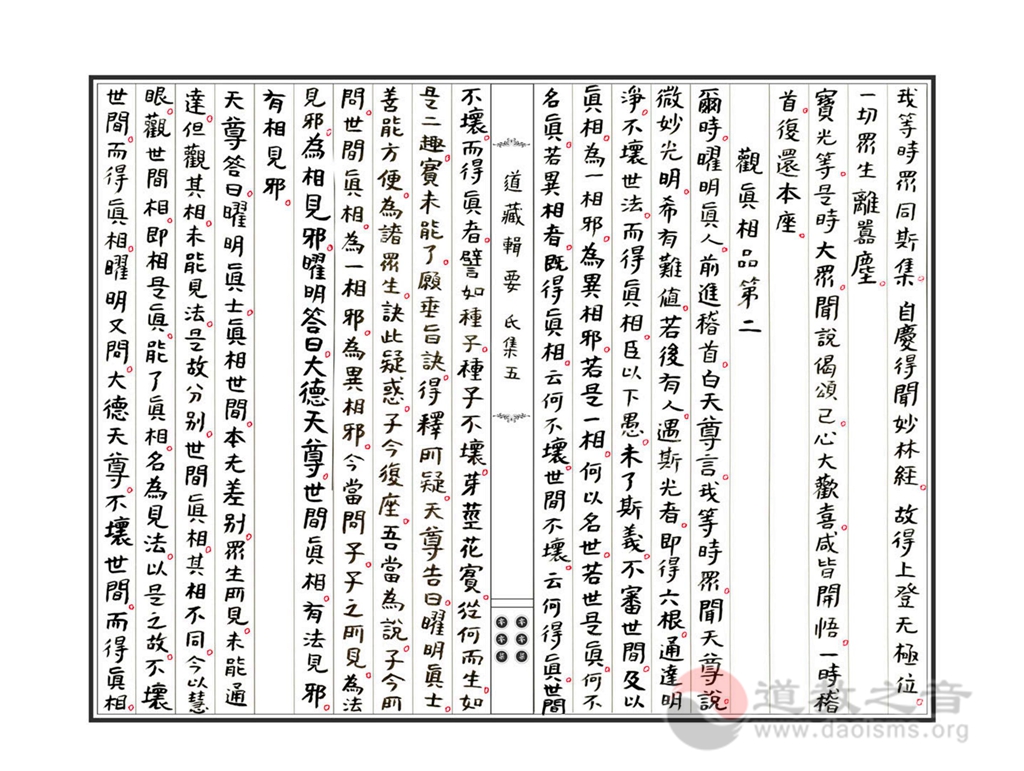 我等時眾同斯集。自慶得聞妙林經。故得上登无極位。
一切眾生離囂塵。
寶光等。是時大眾。聞說偈頌已。心大歡喜。咸皆開悟。一時稽
首。復還本座。
觀眞相品第二
爾時。曜明眞人。前進稽首。白天尊言。我等時眾。聞天尊說。
微妙光明。希有難值。若後有人。遇斯光者。即得六根。通達明
淨。不壞世法。而得眞相。臣以下愚。未了斯義。不審世間。及以
眞相。為一相邪。為異相邪。若是一相。何以名世。若世是眞。何不
名眞。若異相者。既得眞相。云何不壞。世間不壞。云何得眞。世間
道藏輯要 氐集五
不壞。而得眞者。譬如種子。種子不壞。芽莖花實。從何而生。如
是二趣。實未能了。願垂旨訣。得釋所疑。天尊告曰。曜明眞士。
善能方便。為諸眾生。訣此疑惑。子今復座。吾當為說。子今所
問。世間眞相。為一相邪。為異相邪。今當問子。子之所見。為法
見邪。為相見邪。曜明答曰。大德天尊。世間眞相。有法見邪。
有相見邪。
天尊答曰。曜明眞士。眞相世間。本无差别。眾生所見。未能通
達。但觀其相。未能見法。是故分别。世間眞相。其相不同。今以慧
眼。觀世間相。即相是眞。能了眞相。名為見法。以是之故。不壞
世間。而得眞相。曜明又問。大德天尊。不壞世間。而得眞相。
道教之音
www.daoisms.org